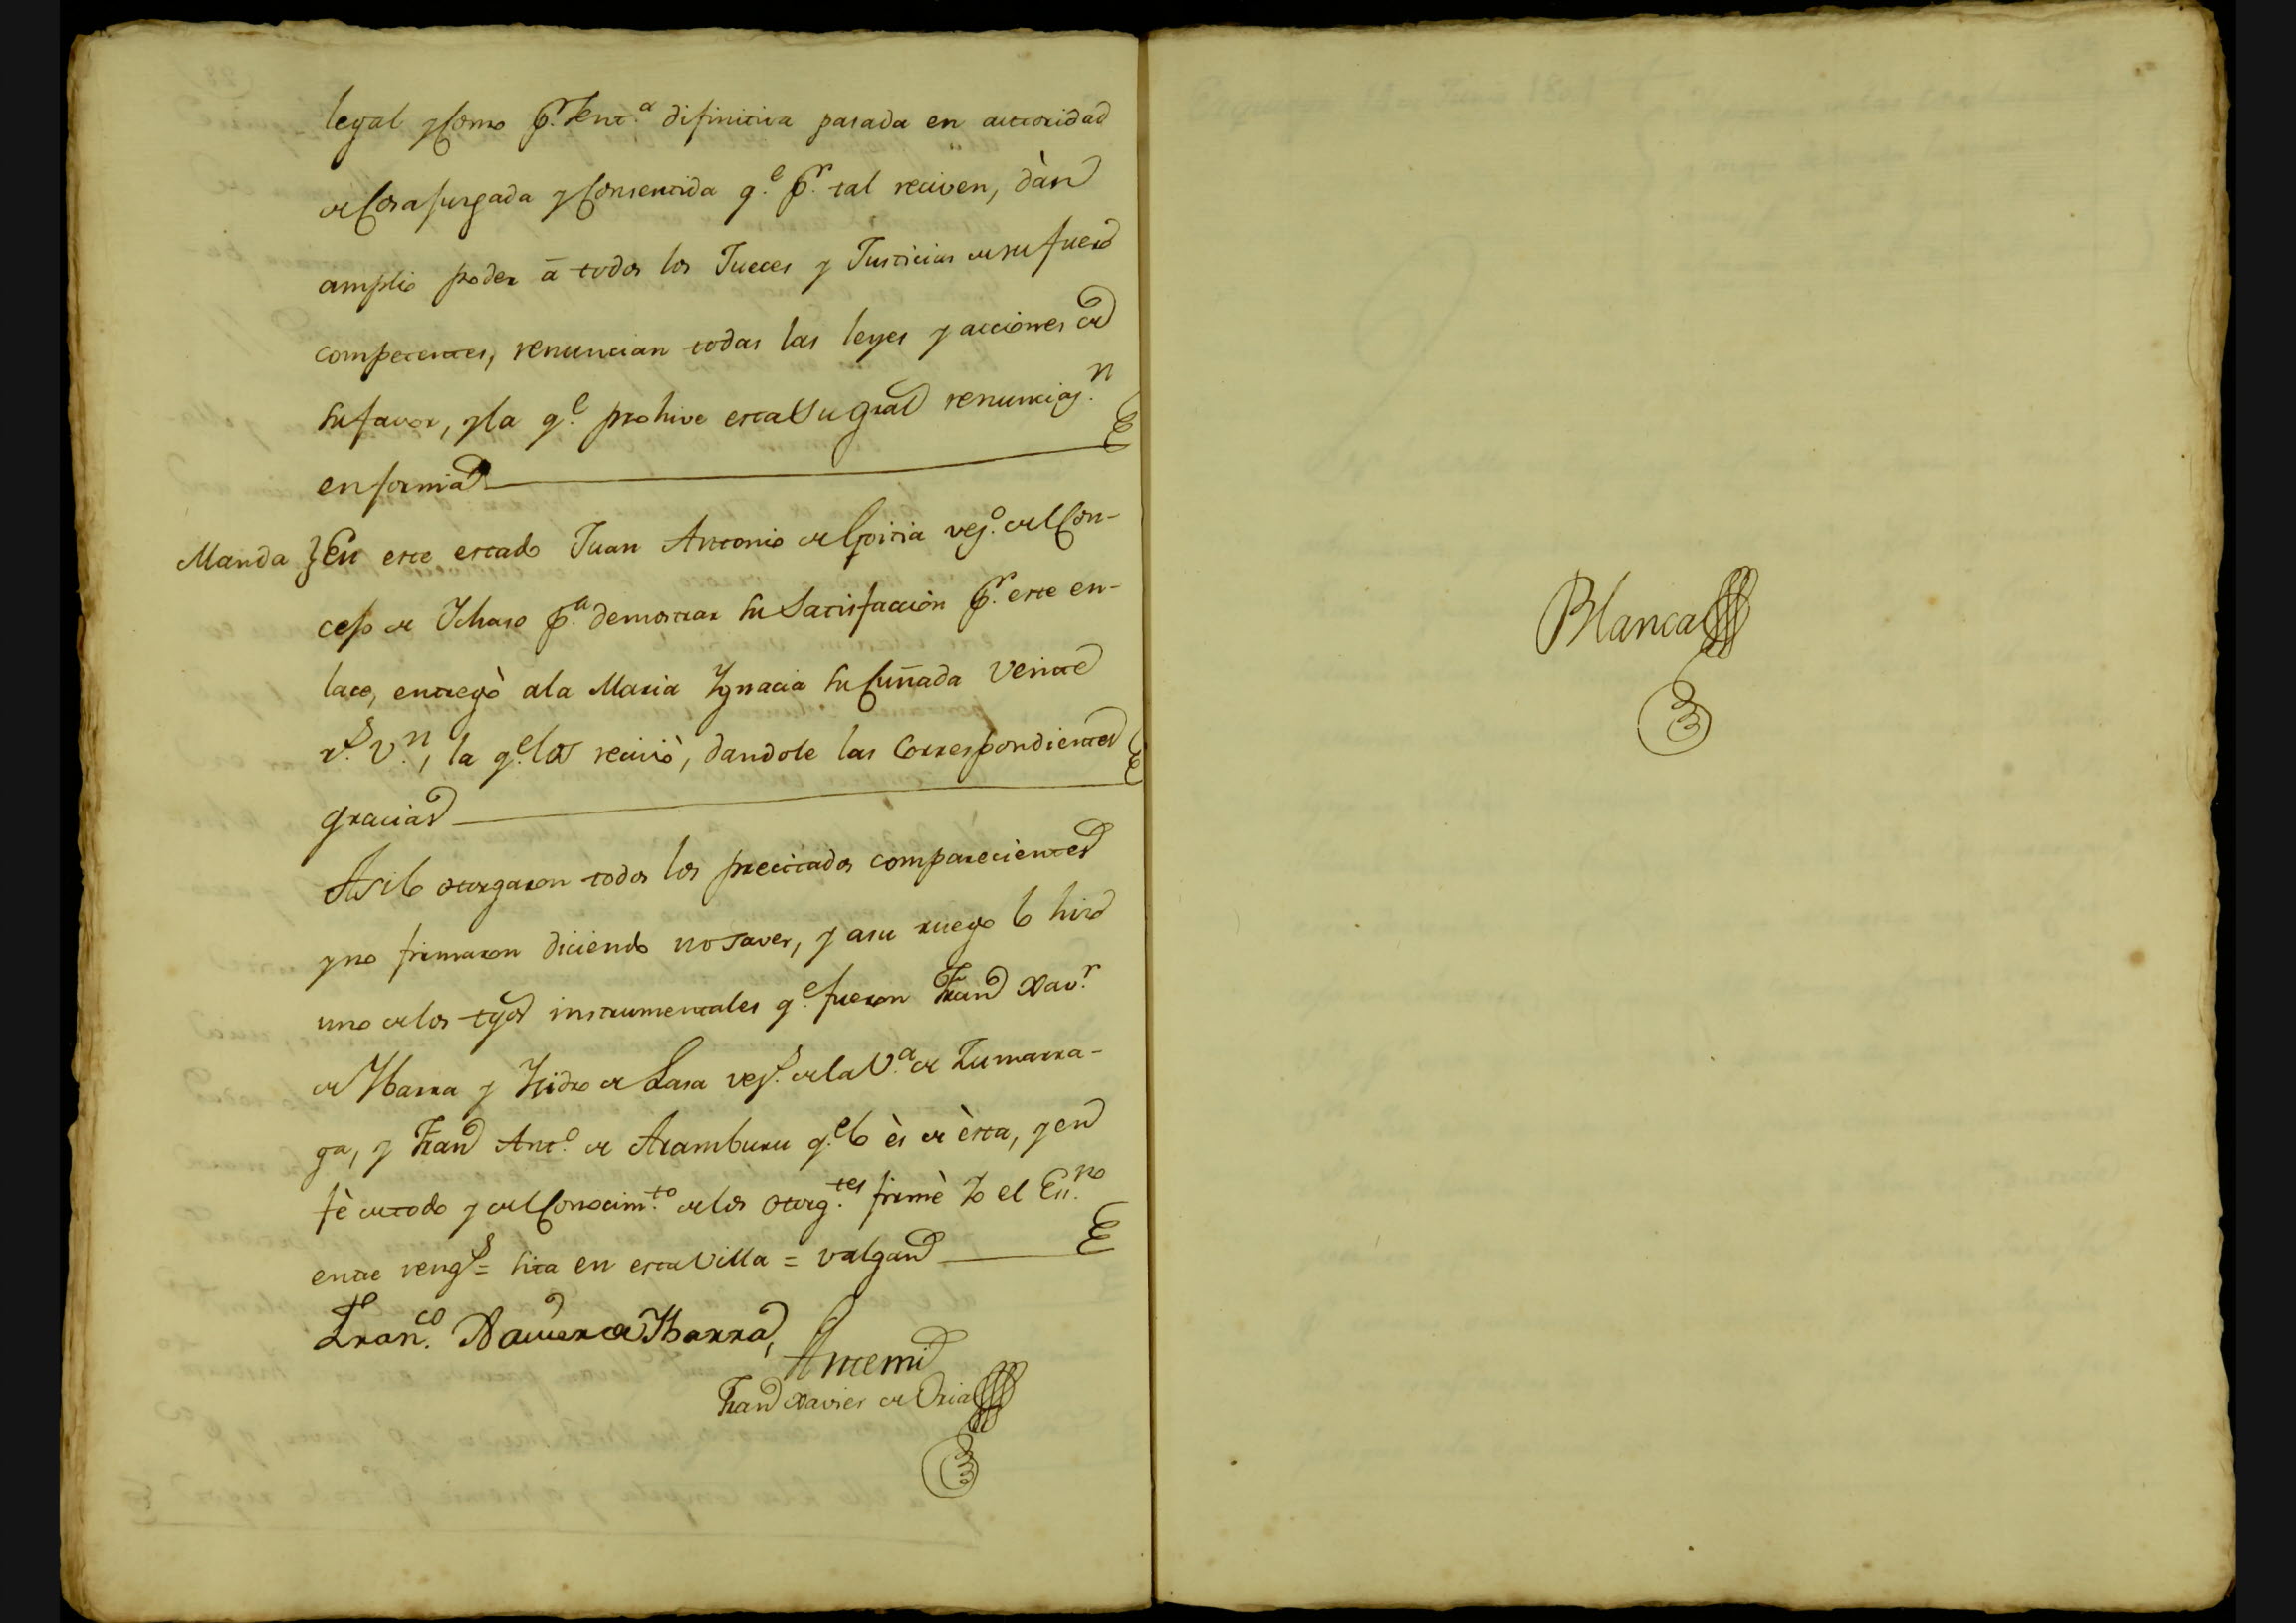 legal y como pr. Sent.a difinitiva pasada en autoridad
de Cosa Jusgada y Consentida q.e pr. tal reciven, dàn
amplio poder à todos los Jueces y Justicias de su fuero
competentes, renuncian todas las leyes y acciones de
su favor, y la q.e prohive esta su gral renunciaz.n
en forma
Manda } En este estado Juan Antonio de vez.o del Con-
cejo de Ichaso p.a demostrar su Satisfacción pr. este en-
lace, entregò a la Maria Ygnacia su Cuñada Veinte
r.s v.n, la q.e los reciviò, dandole las Correspondientes
gracias
Asi lo otorgaron todos los precitados comparecientes
y no firmaron diciendo no saver, y a su ruego lo hizo
uno de los tgos instrumentales q.e fueron Fran.co Xav.r
de Ybarra y Ysidro de Lasa vez.s de la V.a de Zumarra-
ga, y Fran.co Ant.o de Aramburu q.e lo ès de èsta, y en
fè de todo y del Conocim.to de los otorg.tes firmè Yo el Ess.no
entre reng.s = sita en esta Villa = valgan
Fran.co Xavier de Ybarra
Ante mi
Fran.co Xavier de Oria
Blanca